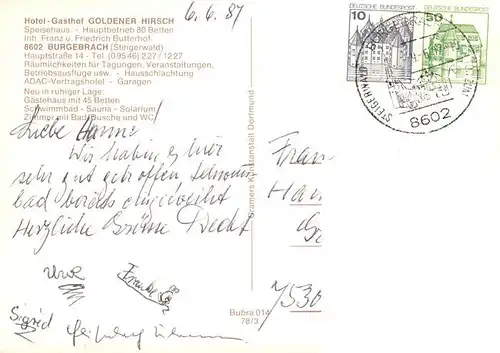 Hotel-Gasthof GOLDENER HIRSCH
Speisehaus - Hauptbetrieb 80 Betten
Inh. Franz u. Friedrich Butterhof
8602 BURGEBRACH (Steigerwald)
Hauptstraße 14 - Tel. (09546) 227 / 1227
Räumlichkeiten für Tagungen, Veranstaltungen,
Betriebsausflüge usw. - Hausschlachtung
ADAC-Vertragshotel - Garagen
Neu in ruhiger Lage:
Gästehaus mit 45 Betten
Schwimmbad - Sauna - Solarium
Zimmer mit Bad/Dusche und WC
6.6.87
DEUTSCHE BUNDESPOST
10
DEUTSCHE BUNDESPOST
50
STEIGERWALD
8602
Liebe Hanne!
Wir haben es hier
sehr gut getroffen Schwimm
bad bereits eingeweiht
Herzliche Grüße
Sigrid
Cramers Kunstanstalt Dortmund
Bubra 014
78/3
Fran
Han
7530